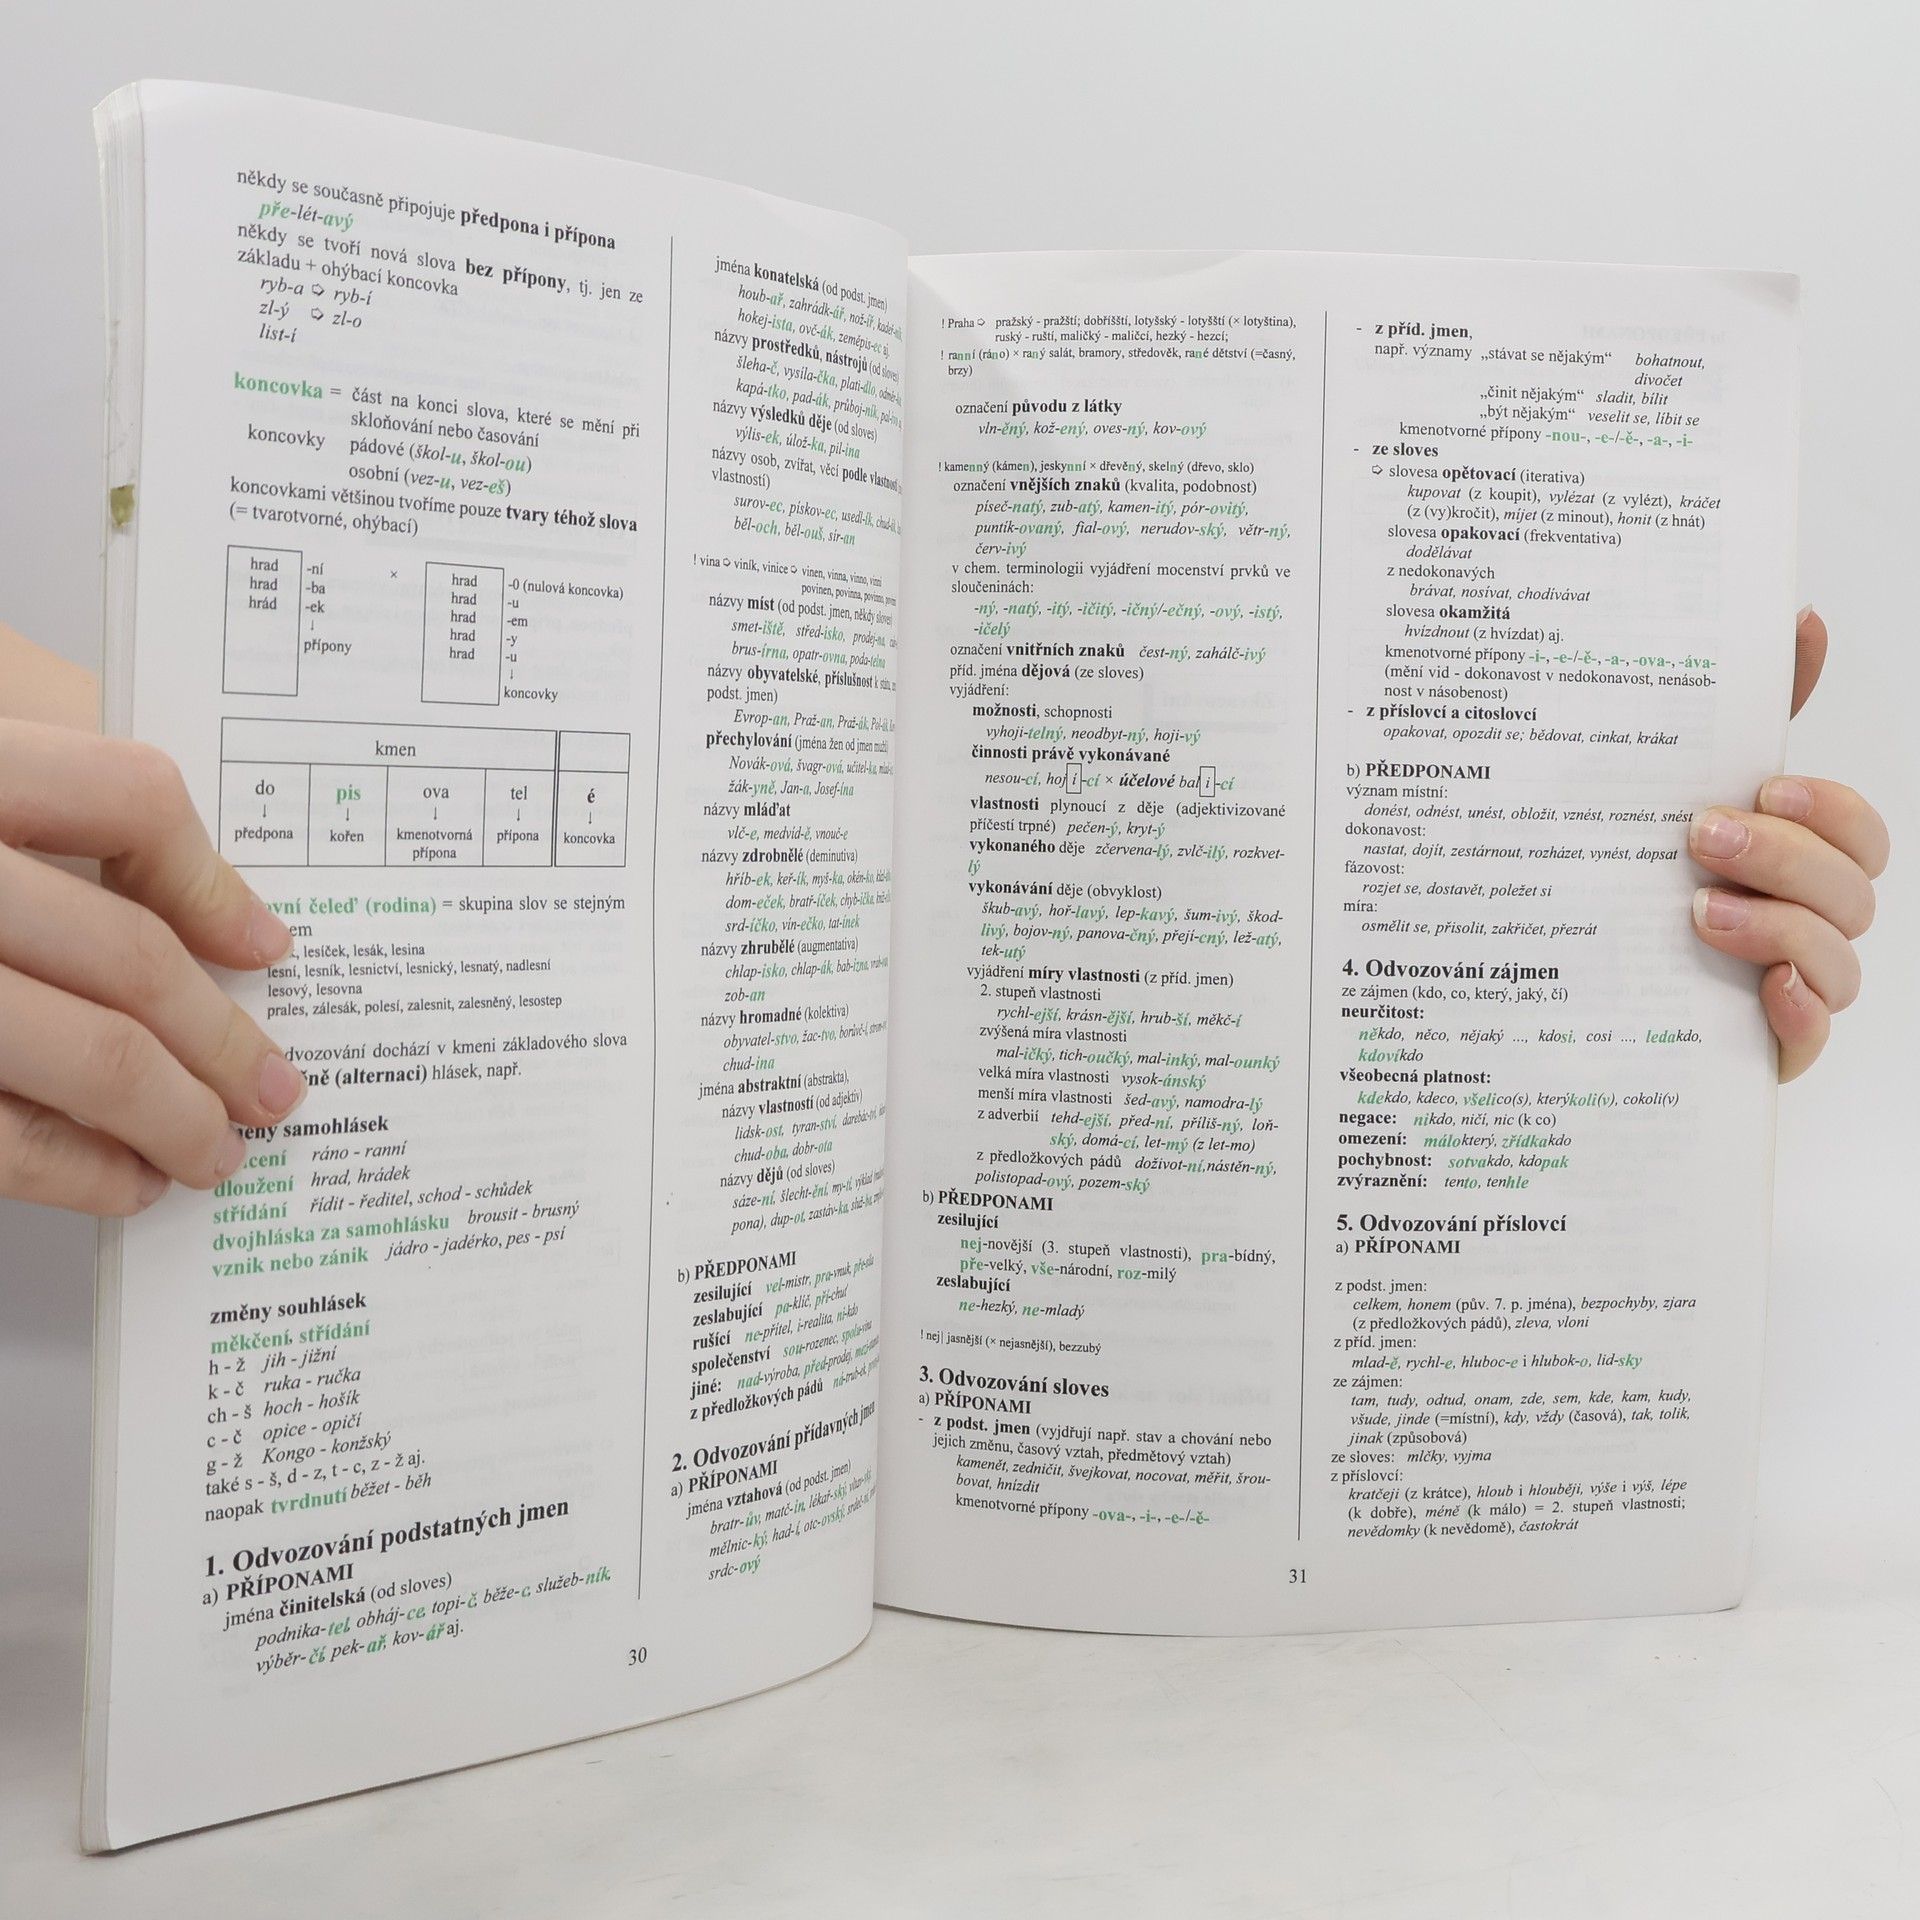 někdy se současně připojuje předpona i přípona
pře-lét-avý
někdy se tvoří nová slova bez přípony, tj. jen ze
základu + ohýbací koncovka
ryb-a ➩ ryb-í
zl-ý ➩ zl-o
list-í
koncovka = část na konci slova, které se mění při
skloňování nebo časování
koncovky pádové (škol-u, škol-ou)
osobní (vez-u, vez-eš)
koncovkami většinou tvoříme pouze tvary téhož slova
(= tvarotvorné, ohýbací)
hrad -ní × hrad -0 (nulová koncovka)
hrad -ba hrad -u
hrád -ek hrad -em
↓ hrad -y
přípony hrad -u
↓
koncovky
kmen
do pis ova tel é
↓ ↓ ↓ ↓ ↓
předpona kořen kmenotvorná přípona koncovka
přípona
čeleď (rodina) = skupina slov se stejným
lesíček, lesák, lesina
lesní, lesník, lesnictví, lesnický, lesnatý, nadlesní
lesový, lesovna
prales, zálesák, polesí, zalesnit, zalesněný, lesostep
dochází v kmeni základového slova
(alternaci) hlásek, např.
samohlásek
ráno - ranní
dloužení hrad, hrádek
střídání řídit - ředitel, schod - schůdek
dvojhláska za samohlásku brousit - brusný
vznik nebo zánik jádro - jadérko, pes - psí
změny souhlásek
měkčení, střídání
h - ž jih - jižní
k - č ruka - ručka
ch - š hoch - hošík
c - č opice - opičí
g - ž Kongo - konžský
také s - š, d - z, t - c, z - ž aj.
naopak tvrdnutí běžet - běh
1. Odvozování podstatných jmen
a) PŘÍPONAMI
jména činitelská (od sloves)
podnika-tel, obháj-ce, topi-č, běže-c, služeb-ník,
výběr-čí, pek-ař, kov-ář aj.
30
jména konatelská (od podst. jmen)
houb-ař, zahrádk-ář, nož-íř,
hokej-ista, ovč-ák, zeměpis-ec aj.
názvy prostředků, nástrojů (od sloves)
šleha-č, vysíla-čka, plati-dlo,
kapá-tko, pad-ák, průboj-ník,
názvy výsledků děje (od sloves)
výlis-ek, úlož-ka, pil-ina
názvy osob, zvířat, věcí podle vlastností
vlastností)
surov-ec, pískov-ec, usedl-ík,
běl-och, běl-ouš, sir-an
! vina ➩ viník, vinice ➩ vinen, vinna, vinno, vinni
povinen, povinna, povinno,
názvy míst (od podst. jmen, někdy sloves)
smet-iště, střed-isko, prodej-na,
brus-írna, opatr-ovna, poda-telna
názvy obyvatelské, příslušnost k
podst. jmen)
Evrop-an, Praž-an, Praž-ák, Pol-ák,
přechylování (jména žen od jmen mužů)
Novák-ová, švagr-ová, učitel-ka,
žák-yně, Jan-a, Josef-ína
názvy mláďat
vlč-e, medvíd-ě, vnouč-e
názvy zdrobnělé (deminutiva)
hříb-ek, keř-ík, myš-ka, okén-ko,
dom-eček, bratř-íček, chyb-ička,
srd-íčko, vín-ečko, tat-ínek
názvy zhrubělé (augmentativa)
chlap-isko, chlap-ák, bab-izna,
zob-an
názvy hromadné (kolektiva)
obyvatel-stvo, žac-tvo, borůvč-í,
chud-ina
jména abstraktní (abstrakta),
názvy vlastností (od adjektiv)
lidsk-ost, tyran-ství,
chud-oba, dobr-ota
názvy dějů (od sloves)
sáze-ní, šlecht-ění, my-tí, výklad
pona), dup-ot, zastáv-ka,
b) PŘEDPONAMI
zesilující vel-mistr, pra-vnuk, pře-síla
zeslabující pa-klíč, pří-chuť
rušící ne-přítel, i-realita, ni-kdo
společenství sou-rozenec, spolu-vina
jiné: nad-výroba, před-prodej,
z předložkových pádů
2. Odvozování přídavných jmen
a) PŘÍPONAMI
jména vztahová (od podst. jmen)
bratr-ův, matč-in, lékař-ský,
mělnic-ký, had-í, otc-ovský,
srdc-ový
! Praha ➩ pražský - pražští; dobříšští, lotyšský - lotyšští (× lotyština),
ruský - ruští, maličký - maličcí, hezký - hezcí;
! ranní (ráno) × raný salát, bramory, středověk, rané dětství (=časný,
brzy)
označení původu z látky
vln-ěný, kož-ený, oves-ný, kov-ový
! kamenný (kámen), jeskynní × dřevěný, skelný (dřevo, sklo)
označení vnějších znaků (kvalita, podobnost)
píseč-natý, zub-atý, kamen-itý, pór-ovitý,
puntík-ovaný, fial-ový, nerudov-ský, větr-ný,
červ-ivý
v chem. terminologii vyjádření mocenství prvků ve
sloučeninách:
-ný, -natý, -itý, -ičitý, -ičný/-ečný, -ový, -istý,
-ičelý
označení vnitřních znaků čest-ný, zahálč-ivý
příd. jména dějová (ze sloves)
vyjádření:
možnosti, schopnosti
vyhoji-telný, neodbyt-ný, hoji-vý
činnosti právě vykonávané
nesou-cí, hoj í -cí × účelové bal i -cí
vlastnosti plynoucí z děje (adjektivizované
příčestí trpné) pečen-ý, kryt-ý
vykonaného děje zčervena-lý, zvlč-ilý, rozkvet-
lý
vykonávání děje (obvyklost)
škub-avý, hoř-lavý, lep-kavý, šum-ivý, škod-
livý, bojov-ný, panova-čný, přejí-cný, lež-atý,
tek-utý
vyjádření míry vlastnosti (z příd. jmen)
2. stupeň vlastnosti
rychl-ejší, krásn-ější, hrub-ší, měkč-í
zvýšená míra vlastnosti
mal-ičký, tich-oučký, mal-inký, mal-ounký
velká míra vlastnosti vysok-ánský
menší míra vlastnosti šed-avý, namodra-lý
z adverbií tehd-ejší, před-ní, příliš-ný, loň-
ský, domá-cí, let-mý (z let-mo)
z předložkových pádů doživot-ní,nástěn-ný,
polistopad-ový, pozem-ský
b) PŘEDPONAMI
zesilující
nej-novější (3. stupeň vlastnosti), pra-bídný,
pře-velký, vše-národní, roz-milý
zeslabující
ne-hezký, ne-mladý
! nej| jasnější (× nejasnější), bezzubý
3. Odvozování sloves
a) PŘÍPONAMI
- z podst. jmen (vyjdřují např. stav a chování nebo
jejich změnu, časový vztah, předmětový vztah)
kamenět, zedničit, švejkovat, nocovat, měřit, šrou-
bovat, hnízdit
kmenotvorné přípony -ova-, -i-, -e-/-ě-
- z příd. jmen,
např. významy „stávat se nějakým“ bohatnout,
divočet
„činit nějakým“ sladit, bílit
„být nějakým“ veselit se, líbit se
kmenotvorné přípony -nou-, -e-/-ě-, -a-, -i-
- ze sloves
➩ slovesa opětovací (iterativa)
kupovat (z koupit), vylézat (z vylézt), kráčet
(z (vy)kročit), míjet (z minout), honit (z hnát)
slovesa opakovací (frekventativa)
dodělávat
z nedokonavých
brávat, nosívat, chodívávat
slovesa okamžitá
hvízdnout (z hvízdat) aj.
kmenotvorné přípony -i-, -e-/-ě-, -a-, -ova-, -áva-
(mění vid - dokonavost v nedokonavost, nenásob-
nost v násobenost)
- z příslovcí a citoslovcí
opakovat, opozdit se; bědovat, cinkat, krákat
b) PŘEDPONAMI
význam místní:
donést, odnést, unést, obložit, vznést, roznést, snést
dokonavost:
nastat, dojít, zestárnout, rozházet, vynést, dopsat
fázovost:
rozjet se, dostavět, poležet si
míra:
osmělit se, přisolit, zakřičet, přezrát
4. Odvozování zájmen
ze zájmen (kdo, co, který, jaký, čí)
neurčitost:
někdo, něco, nějaký ..., kdosi, cosi ..., ledakdo,
kdovíkdo
všeobecná platnost:
kdekdo, kdeco, všelico(s), kterýkoli(v), cokoli(v)
negace: nikdo, ničí, nic (k co)
omezení: málokterý, zřídkakdo
pochybnost: sotvakdo, kdopak
zvýraznění: tento, tenhle
5. Odvozování příslovcí
a) PŘÍPONAMI
z podst. jmen:
celkem, honem (pův. 7. p. jména), bezpochyby, zjara
(z předložkových pádů), zleva, vloni
z příd. jmen:
mlad-ě, rychl-e, hluboc-e i hlubok-o, lid-sky
ze zájmen:
tam, tudy, odtud, onam, zde, sem, kde, kam, kudy,
všude, jinde (=místní), kdy, vždy (časová), tak, tolik,
jinak (způsobová)
ze sloves: mlčky, vyjma
z příslovcí:
kratčeji (z krátce), hloub i hlouběji, výše i výš, lépe
(k dobře), méně (k málo) = 2. stupeň vlastnosti;
nevědomky (k nevědomě), častokrát
31